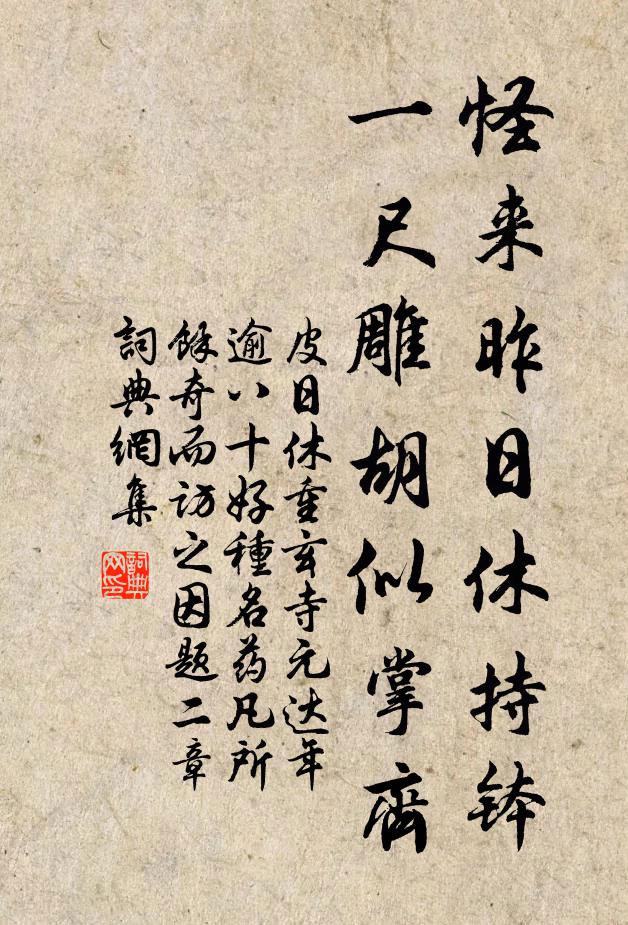 怪来昨日休持钵
一尺雕胡似掌齊
皮日休重玄寺元达年
逾八十好種名药凡所
餘奇而訪之因题二章
詞典網集
詞典网印